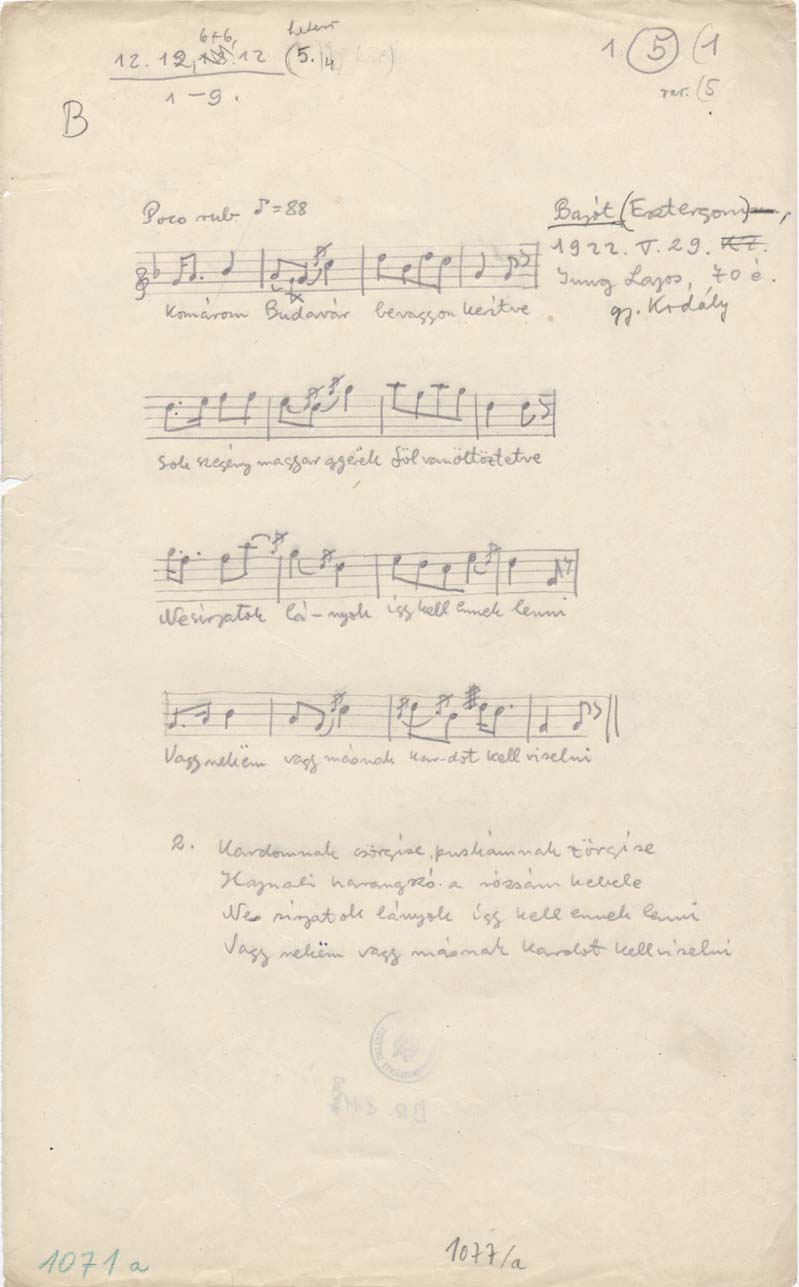 6+6,
12. 12, 12. 12 (5.) 4
1 – 9.
B
1. 5 (1
var. (5
Poco rub. ♪=88
Bajót (Esztergom),
1922. V. 29. KZ.
Jung Lajos, 70 é.
gy. Kodály
Komárom Budavár bevaggyon kerítve
Sok szegény magyar gyerëk föl van öltöztetve
Ne sirjatok lá-nyok így kell ennek lenni
Vagy nekëm vagy másnak kar-dot kell viselni
2. Kardomnak csörgíse, puskámnak zörgíse
Hajnali harangszó a rózsám kebele
Ne sirjatok lányok így kell ennek lenni
Vagy nekëm vagy másnak kardot kell viselni
1071 a
1077/a